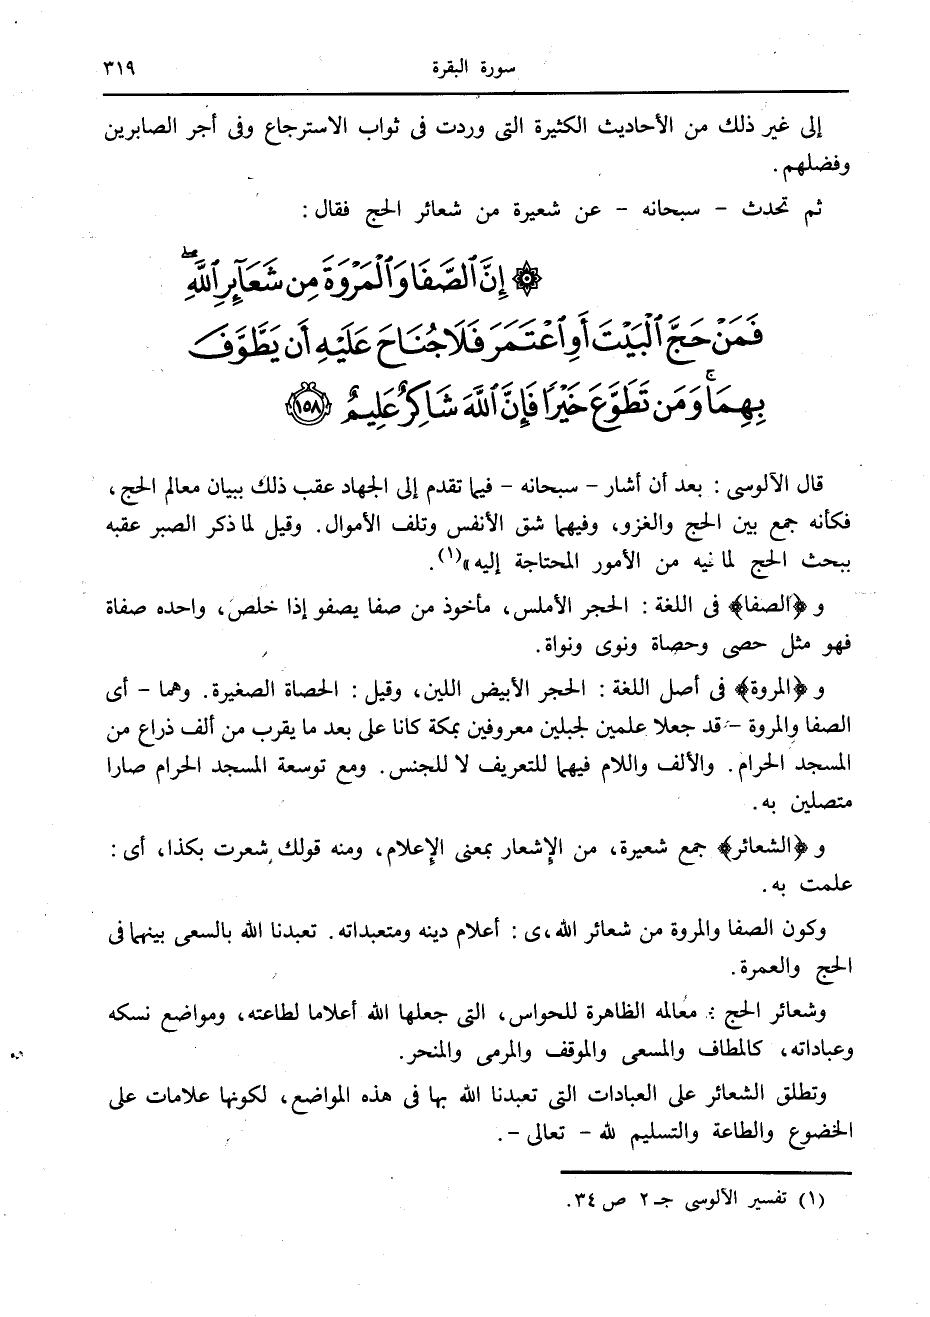 سورة البقرة ٣١٩
إلى غير ذلك من الأحاديث الكثيرة التى وردت فى ثواب الاسترجاع وفى أجر الصابرين
وفضلهم .
ثم تحدث - سبحانه - عن شعيرة من شعائر الحج فقال :
۞ إِنَّ ٱلصَّفَا وَٱلْمَرْوَةَ مِن شَعَآئِرِ ٱللَّهِۖ
فَمَنْ حَجَّ ٱلْبَيْتَ أَوِ ٱعْتَمَرَ فَلَا جُنَاحَ عَلَيْهِ أَن يَطَّوَّفَ
بِهِمَاۚ وَمَن تَطَوَّعَ خَيْرًا فَإِنَّ ٱللَّهَ شَاكِرٌ عَلِيمٌ ١٥٨
قال الآلوسى : بعد أن أشار - سبحانه - فيما تقدم إلى الجهاد عقب ذلك ببيان معالم الحج ،
فكأنه جمع بين الحج والغزو، وفيهما شق الأنفس وتلف الأموال. وقيل لما ذكر الصبر عقبه
ببحث الحج لما فيه من الأمور المحتاجة إليه»(١).
و ﴿الصفا﴾ فى اللغة : الحجر الأملس، مأخوذ من صفا يصفو إذا خلص، واحده صفاة
فهو مثل حصى وحصاة ونوى ونواة.
و ﴿المروة﴾ فى أصل اللغة : الحجر الأبيض اللين، وقيل : الحصاة الصغيرة. وهما - أى
الصفا والمروة - قد جعلا علمين لجبلين معروفين بمكة كانا على بعد ما يقرب من ألف ذراع من
المسجد الحرام. والألف واللام فيهما للتعريف لا للجنس. ومع توسعة المسجد الحرام صارا
متصلين به.
و ﴿الشعائر﴾ جمع شعيرة، من الإشعار بمعنى الإعلام، ومنه قولك شعرت بكذا، أى :
علمت به.
وكون الصفا والمروة من شعائر الله ،ى : أعلام دينه ومتعبداته. تعبدنا الله بالسعى بينهما فى
الحج والعمرة.
وشعائر الحج : معالمه الظاهرة للحواس، التى جعلها الله أعلاما لطاعته، ومواضع نسكه
وعباداته، كالمطاف والمسعى والموقف والمرمى والمنحر.
وتطلق الشعائر على العبادات التى تعبدنا الله بها فى هذه المواضع، لكونها علامات على
الخضوع والطاعة والتسليم لله - تعالى -.
(١) تفسير الآلوسى جـ ٢ ص ٣٤.